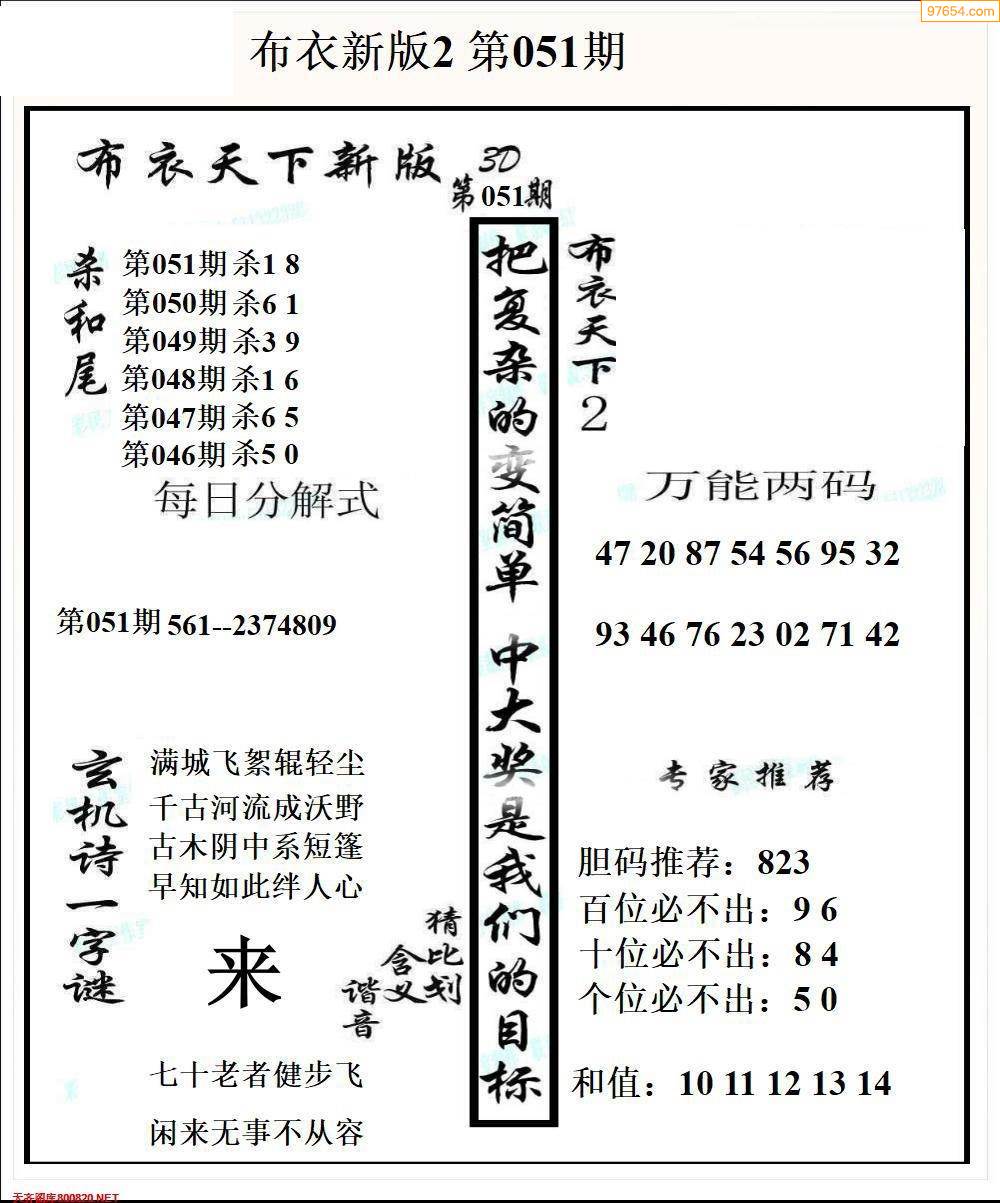 97654.com
布衣新版2 第051期
布衣天下新版 3D
第051期
杀和尾
第051期 杀1 8
第050期 杀6 1
第049期 杀3 9
第048期 杀1 6
第047期 杀6 5
第046期 杀5 0
每日分解式
第051期 561--2374809
玄机诗一字谜
满城飞絮辊轻尘
千古河流成沃野
古木阴中系短篷
早知如此绊人心
来
猜比划
含义
谐音
七十老者健步飞
闲来无事不从容
把复杂的变简单 中大奖是我们的目标
布衣天下2
万能两码
47 20 87 54 56 95 32
93 46 76 23 02 71 42
专家推荐
胆码推荐：823
百位必不出：9 6
十位必不出：8 4
个位必不出：5 0
和值：10 11 12 13 14
天齐图库800820.NET